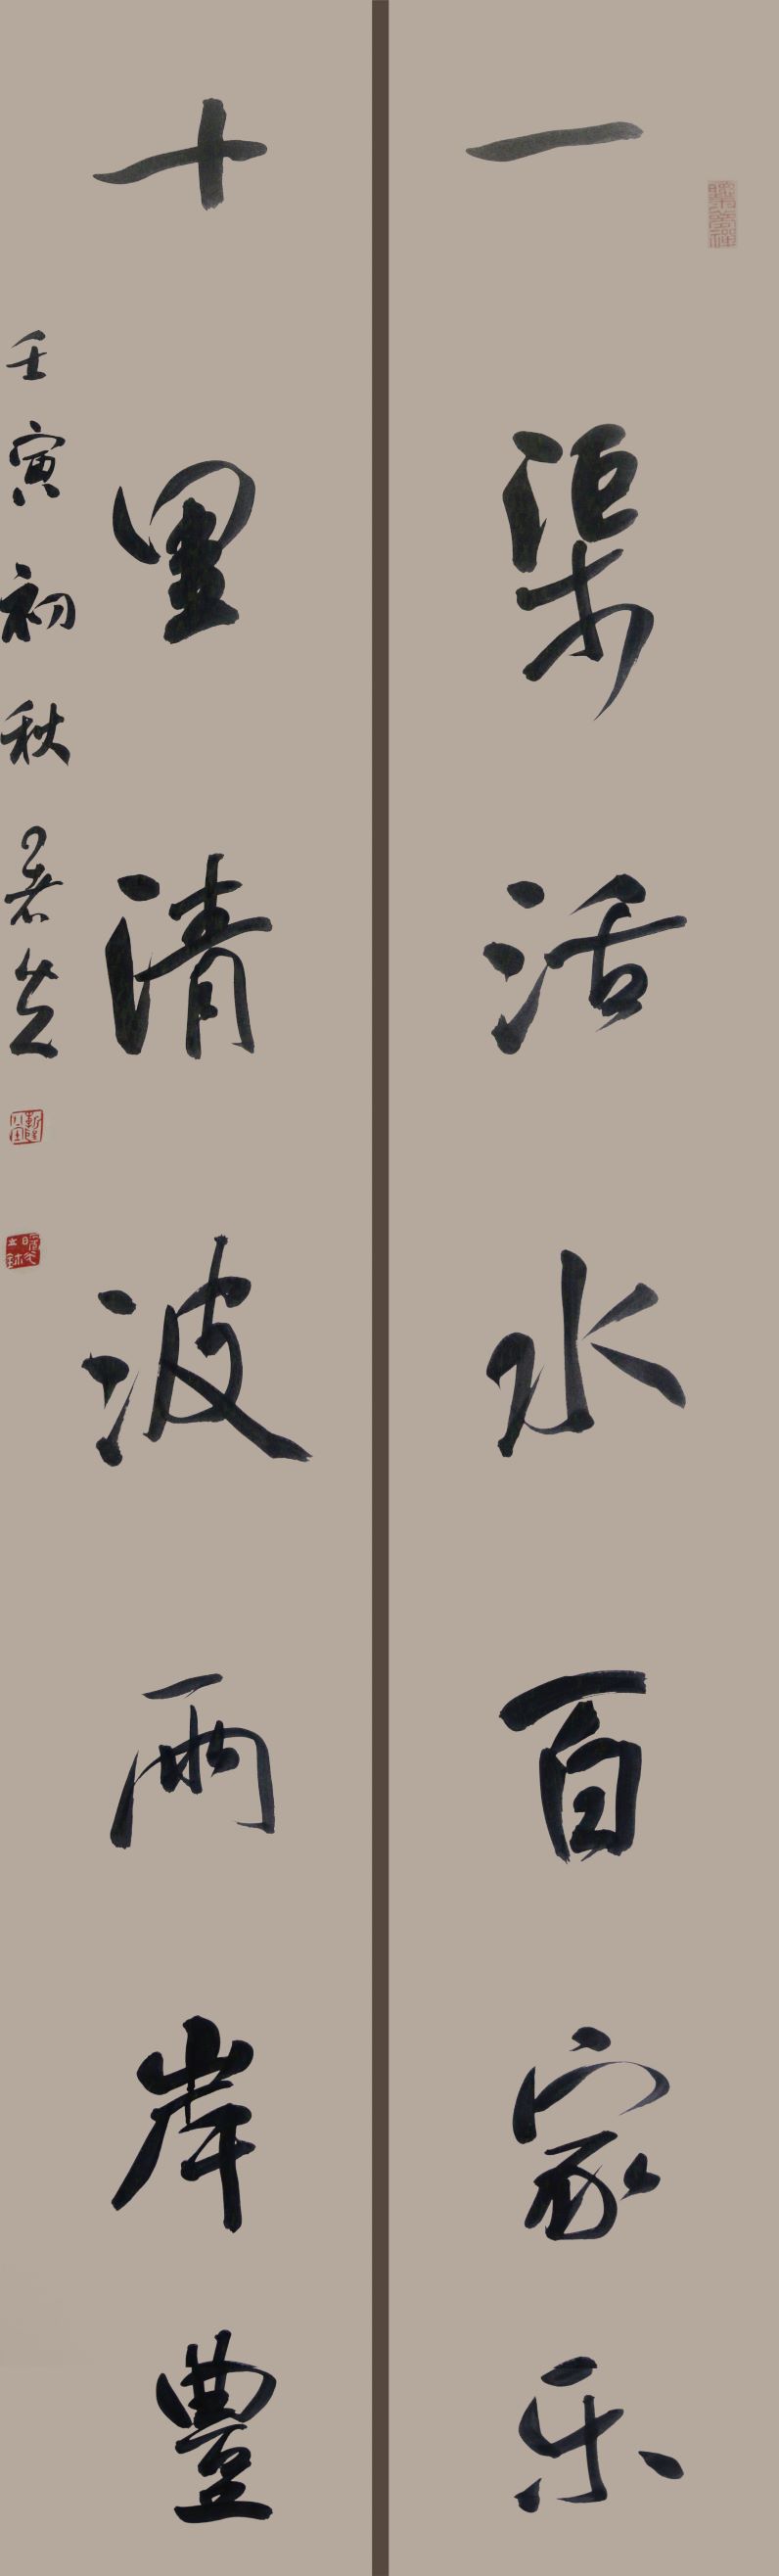 一渠活水百家乐
十里清波兩岸豐
壬寅初秋